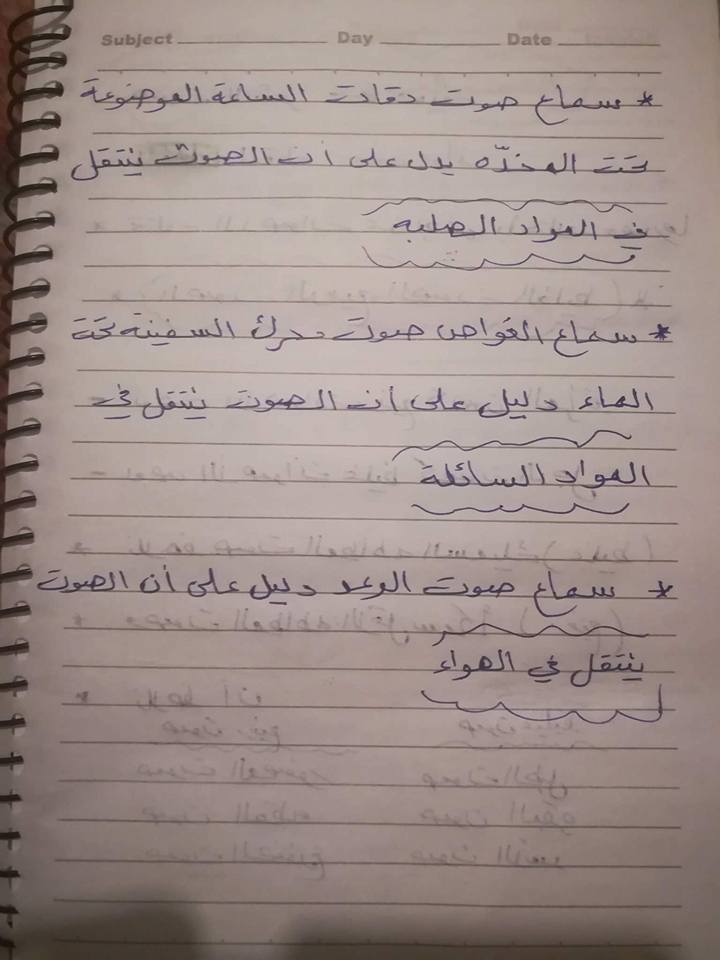 Subject Day Date
* سماع صوت دقات الساعة الموضوعة
تحت المخدّه يدل على أن الصوت ينتقل
في المواد الصلبه
* سماع الغواص صوت محرك السفينة تحت
الماء دليل على أن الصوت ينتقل في
المواد السائلة
* سماع صوت الرعد دليل على أن الصوت
ينتقل في الهواء